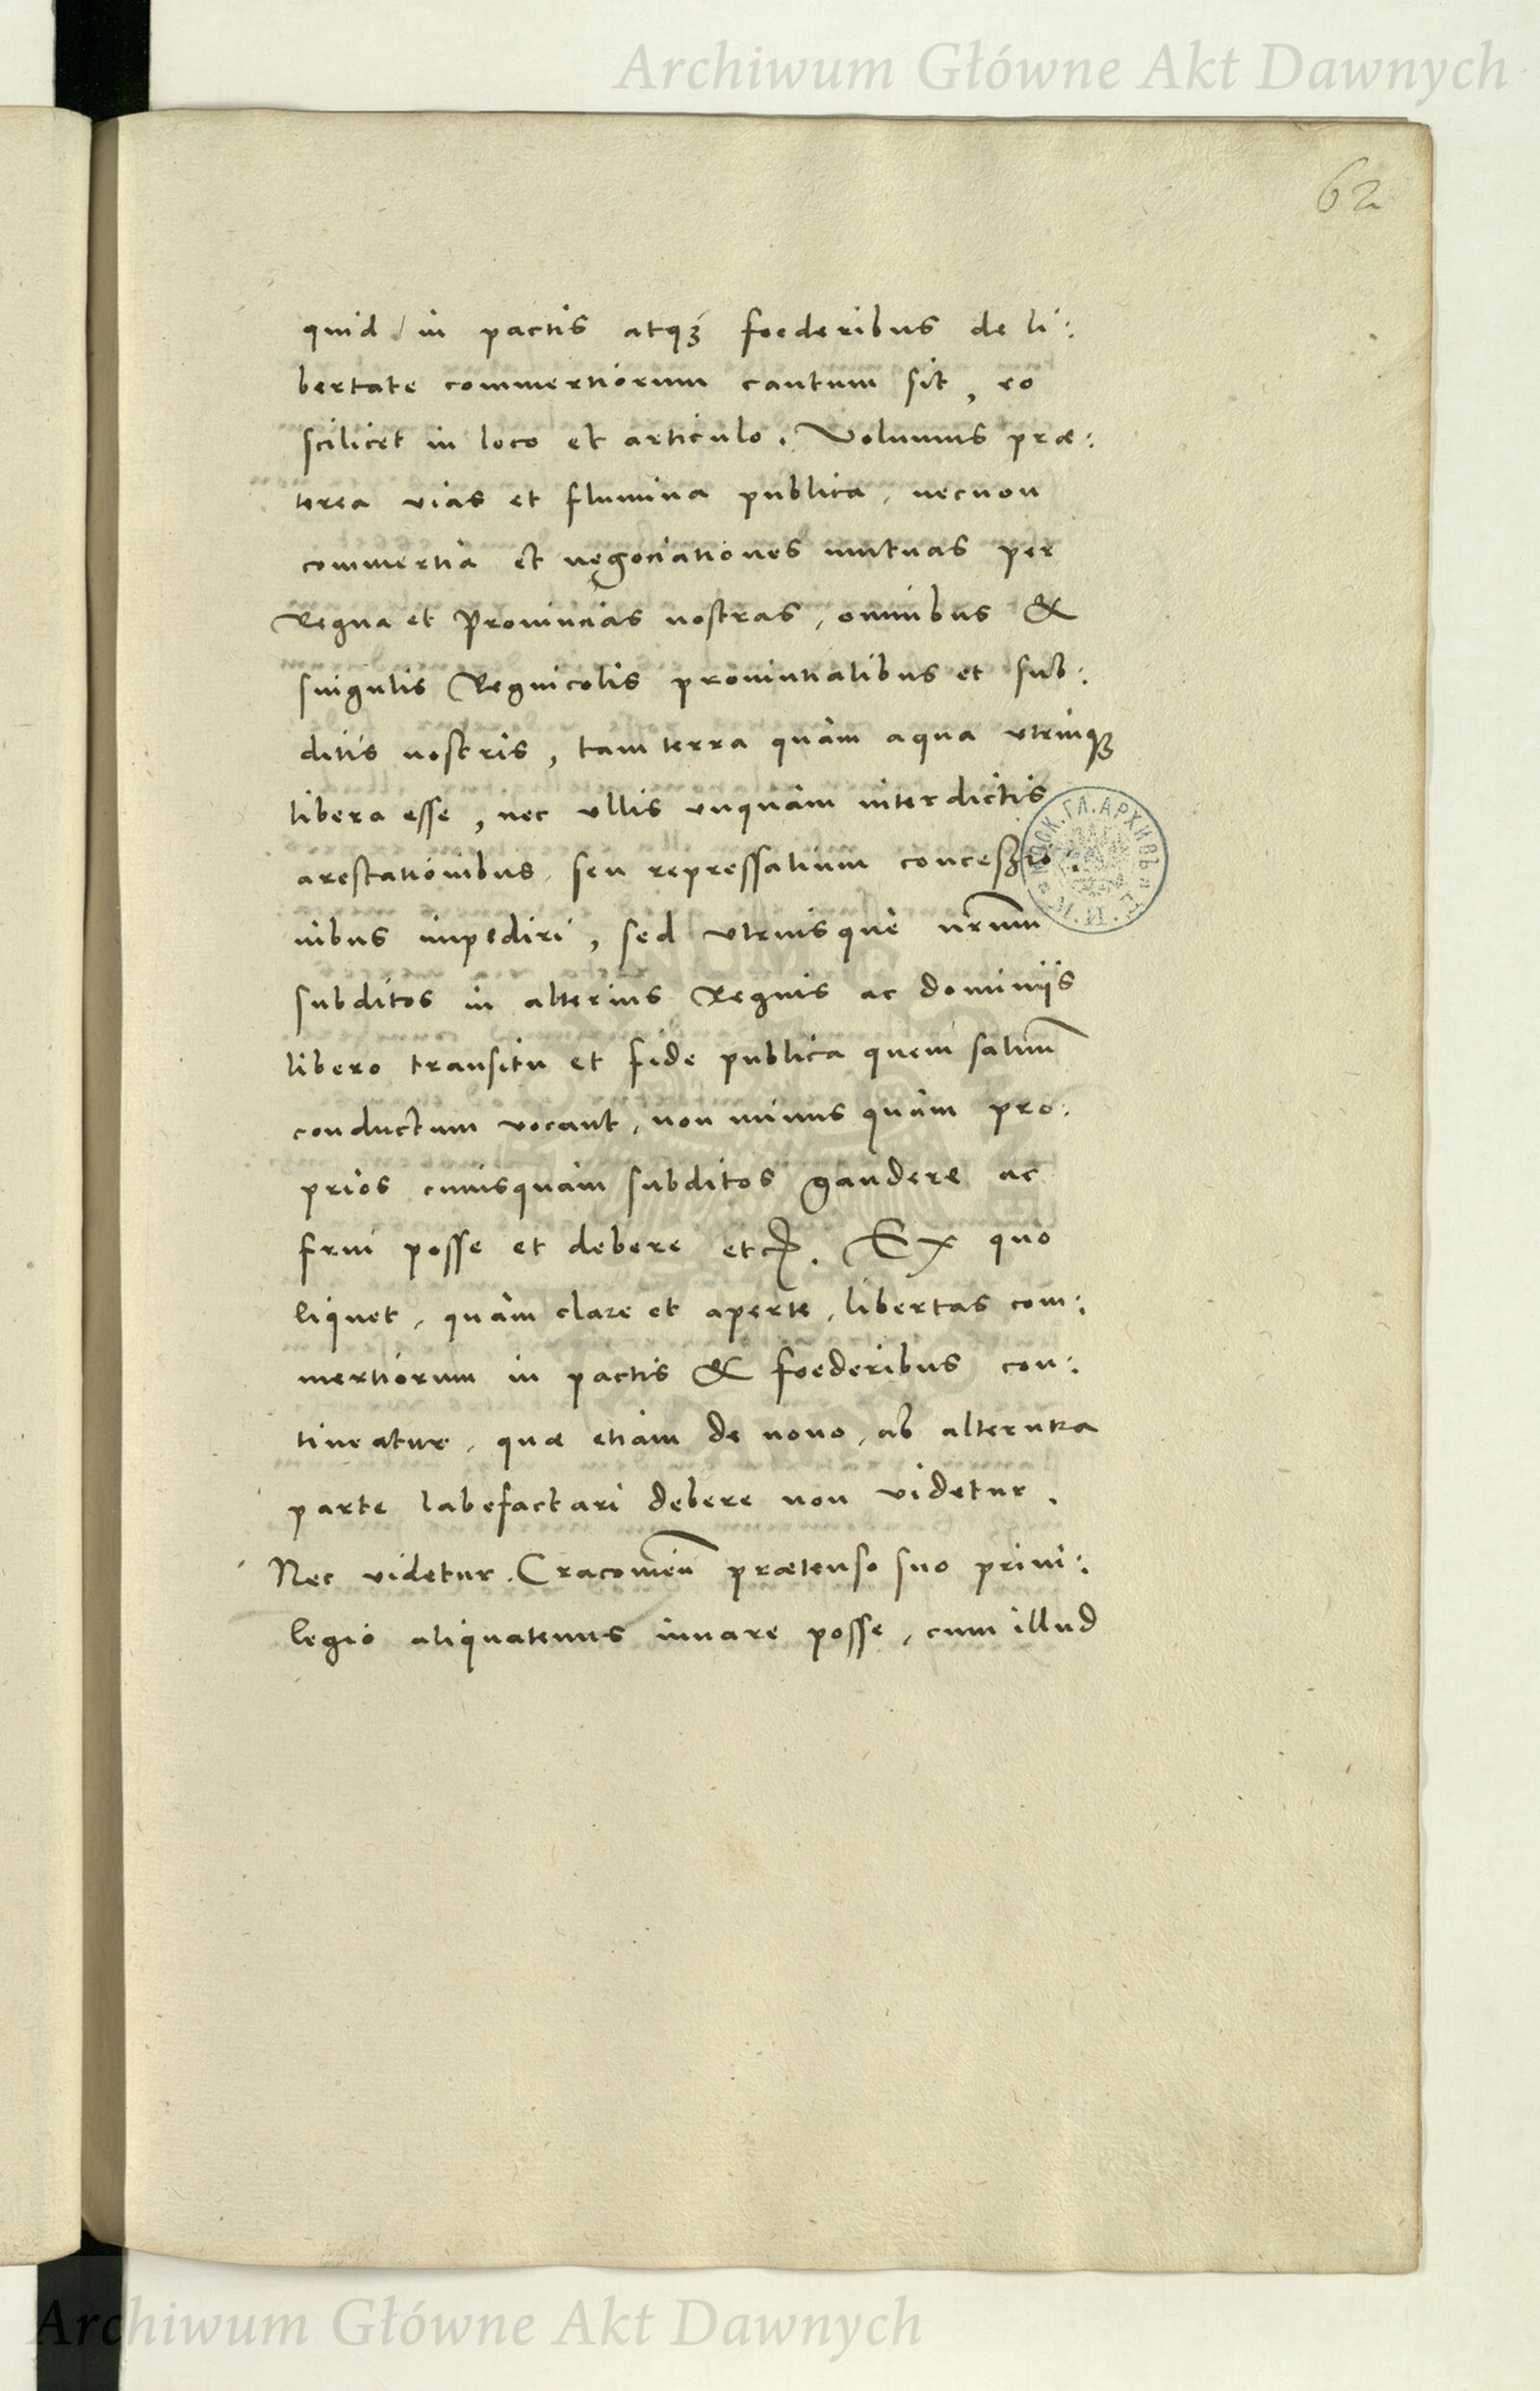 Archiwum Główne Akt Dawnych
62
quid in pactis atqꝫ foederibus de li:
bertate commertiorum cautum sit, eo
scilicet in loco et articulo. Volumus præ:
terea vias et flumina publica, necnon
commertia et negociationes mutuas per
Regna et Prouincias nostras, omnibus &
singulis Regnicolis prouintialibus et sub:
ditis nostris, tam terra quàm aqua vtrinqꝫ
libera esse, nec vllis vnquàm interdictis
arestationibus, seu repressalium conceszio:
nibus impediri, sed vtriusque nr̃um
subditos in alterius Regnis ac dominijs
libero transitu et fide publica quem saluũ
conductum vocant, non minus quàm pro:
prios cuiusquam subditos gaudere ac
frui posse et debere etc. Ex quo
liquet, quàm clare et aperte, libertas com:
mertiorum in pactis & foederibus con:
tineatur, quæ etiam de nouo, ab alterutra
parte labefactari debere non videtur.
Nec videtur Cracouieñ prætenso suo priui:
legio aliquatenus iuuare posse, cum illud
МОСК.ГЛ.АРХИВЪ
М.И.Д.
Archiwum Główne Akt Dawnych